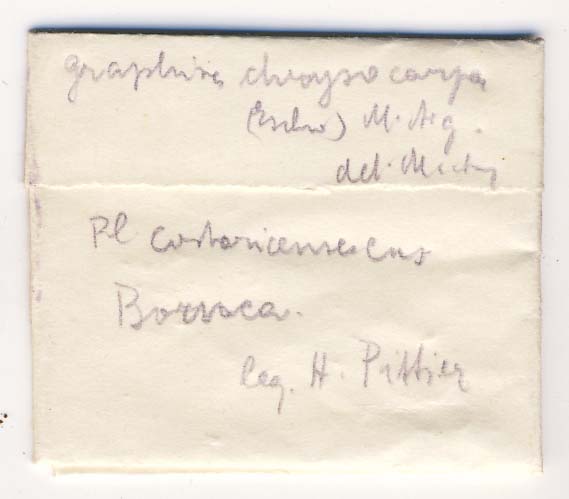 Graphina chrysocarpa
(Eschw) M. Arg.
det. 
Pl costaricenses exs
Boruca.
leg. H. Pittier